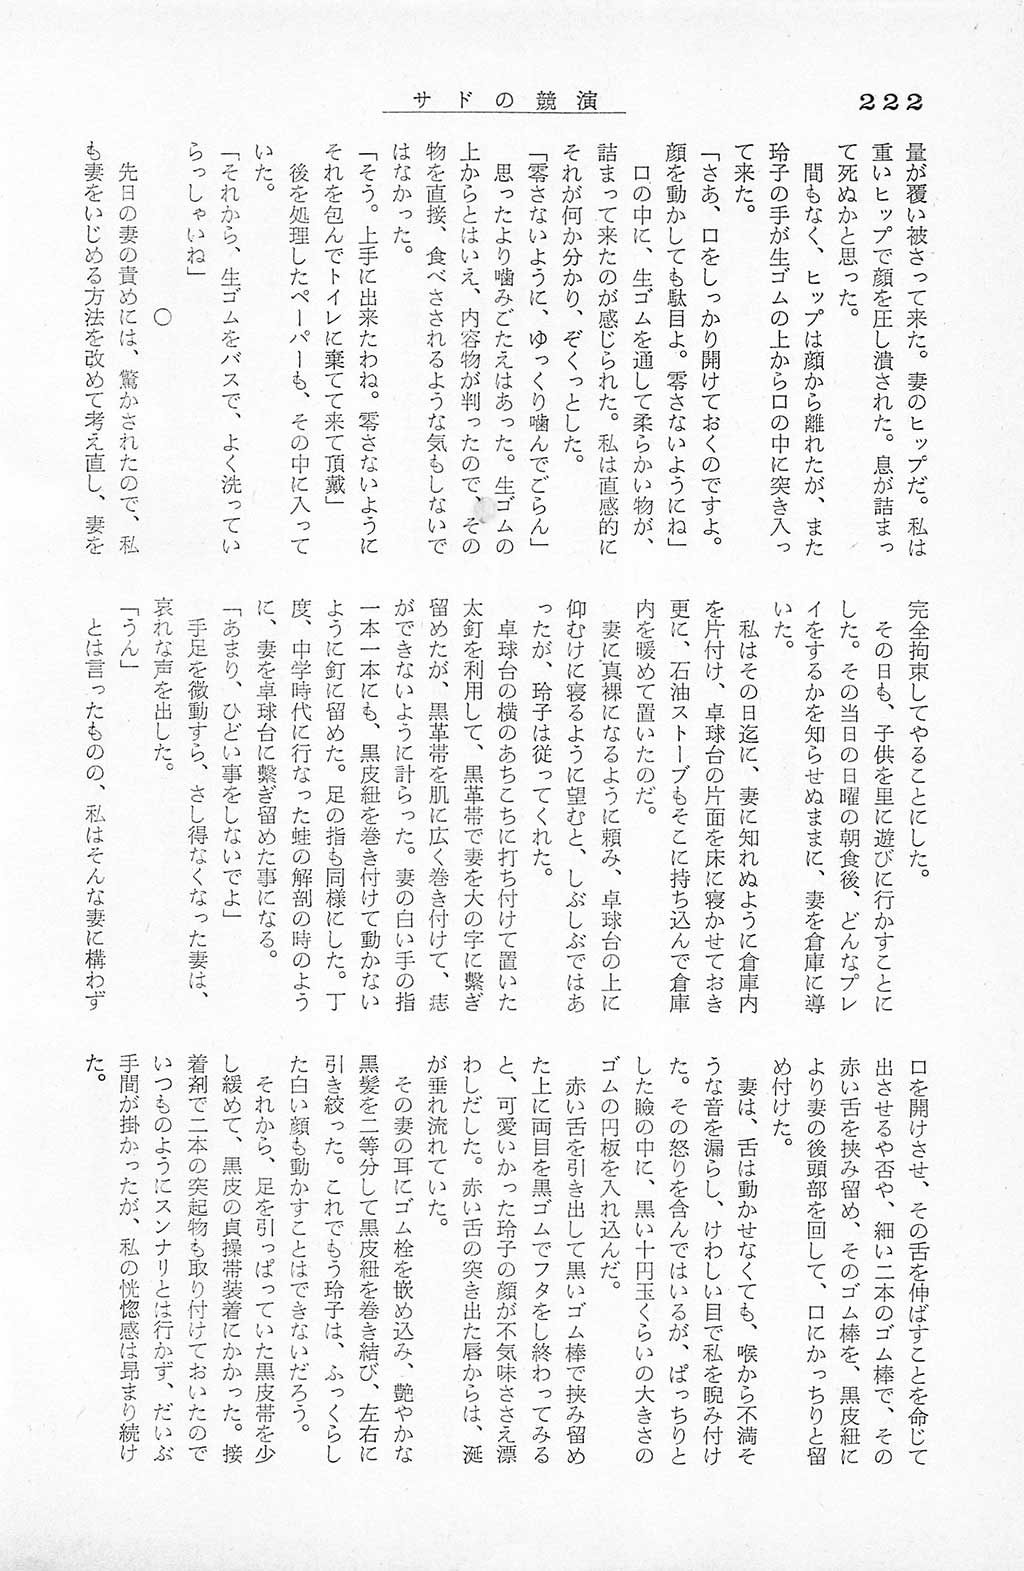 222
サドの競演
量が覆い被さって来た。妻のヒップだ。私は
重いヒップで顔を圧し潰された。息が詰まっ
て死ぬかと思った。
間もなく、ヒップは顔から離れたが、また
玲子の手が生ゴムの上から口の中に突き入っ
て来た。
「さあ、口をしっかり開けておくのですよ。
顔を動かしても駄目よ。零さないようにね」
口の中に、生ゴムを通して柔らかい物が、
詰まって来たのが感じられた。私は直感的に
それが何か分かり、ぞくっとした。
「零さないように、ゆっくり噛んでごらん」
思ったより噛みごたえはあった。生ゴムの
上からとはいえ、内容物が判ったので、その
物を直接、食べさされるような気もしないで
はなかった。
「そう。上手に出来たわね。零さないように
それを包んでトイレに棄てて来て頂戴」
後を処理したペーパーも、その中に入って
いた。
「それから、生ゴムをバスで、よく洗ってい
らっしゃいね」
○
先日の妻の責めには、驚かされたので、私
も妻をいじめる方法を改めて考え直し、妻を
完全拘束してやることにした。
その日も、子供を里に遊びに行かすことに
した。その当日の日曜の朝食後、どんなプレ
イをするかを知らせぬままに、妻を倉庫に導
いた。
私はその日迄に、妻に知れぬように倉庫内
を片付け、卓球台の片面を床に寝かせておき
更に、石油ストーブもそこに持ち込んで倉庫
内を暖めて置いたのだ。
妻に真裸になるように頼み、卓球台の上に
仰むけに寝るように望むと、しぶしぶではあ
ったが、玲子は従ってくれた。
卓球台の横のあちこちに打ち付けて置いた
太釘を利用して、黒革帯で妻を大の字に繋ぎ
留めたが、黒革帯を肌に広く巻き付けて、痣
ができないように計らった。妻の白い手の指
一本一本にも、黒皮紐を巻き付けて動かない
ように釘に留めた。足の指も同様にした。丁
度、中学時代に行なった蛙の解剖の時のよう
に、妻を卓球台に繋ぎ留めた事になる。
「あまり、ひどい事をしないでよ」
手足を微動すら、さし得なくなった妻は、
哀れな声を出した。
「うん」
とは言ったものの、私はそんな妻に構わず
口を開けさせ、その舌を伸ばすことを命じて
出させるや否や、細い二本のゴム棒で、その
赤い舌を挟み留め、そのゴム棒を、黒皮紐に
より妻の後頭部を回して、口にかっちりと留
め付けた。
妻は、舌は動かせなくても、喉から不満そ
うな音を漏らし、けわしい目で私を睨み付け
た。その怒りを含んではいるが、ぱっちりと
した瞼の中に、黒い十円玉くらいの大きさの
ゴムの円板を入れ込んだ。
赤い舌を引き出して黒いゴム棒で挟み留め
た上に両目を黒ゴムでフタをし終わってみる
と、可愛いかった玲子の顔が不気味ささえ漂
わしだした。赤い舌の突き出た唇からは、涎
が垂れ流れていた。
その妻の耳にゴム栓を嵌め込み、艶やかな
黒髪を二等分して黒皮紐を巻き結び、左右に
引き絞った。これでもう玲子は、ふっくらし
た白い顔も動かすことはできないだろう。
それから、足を引っぱっていた黒皮帯を少
し緩めて、黒皮の貞操帯装着にかかった。接
着剤で二本の突起物も取り付けておいたので
いつものようにスンナリとは行かず、だいぶ
手間が掛かったが、私の恍惚感は昂まり続け
た。